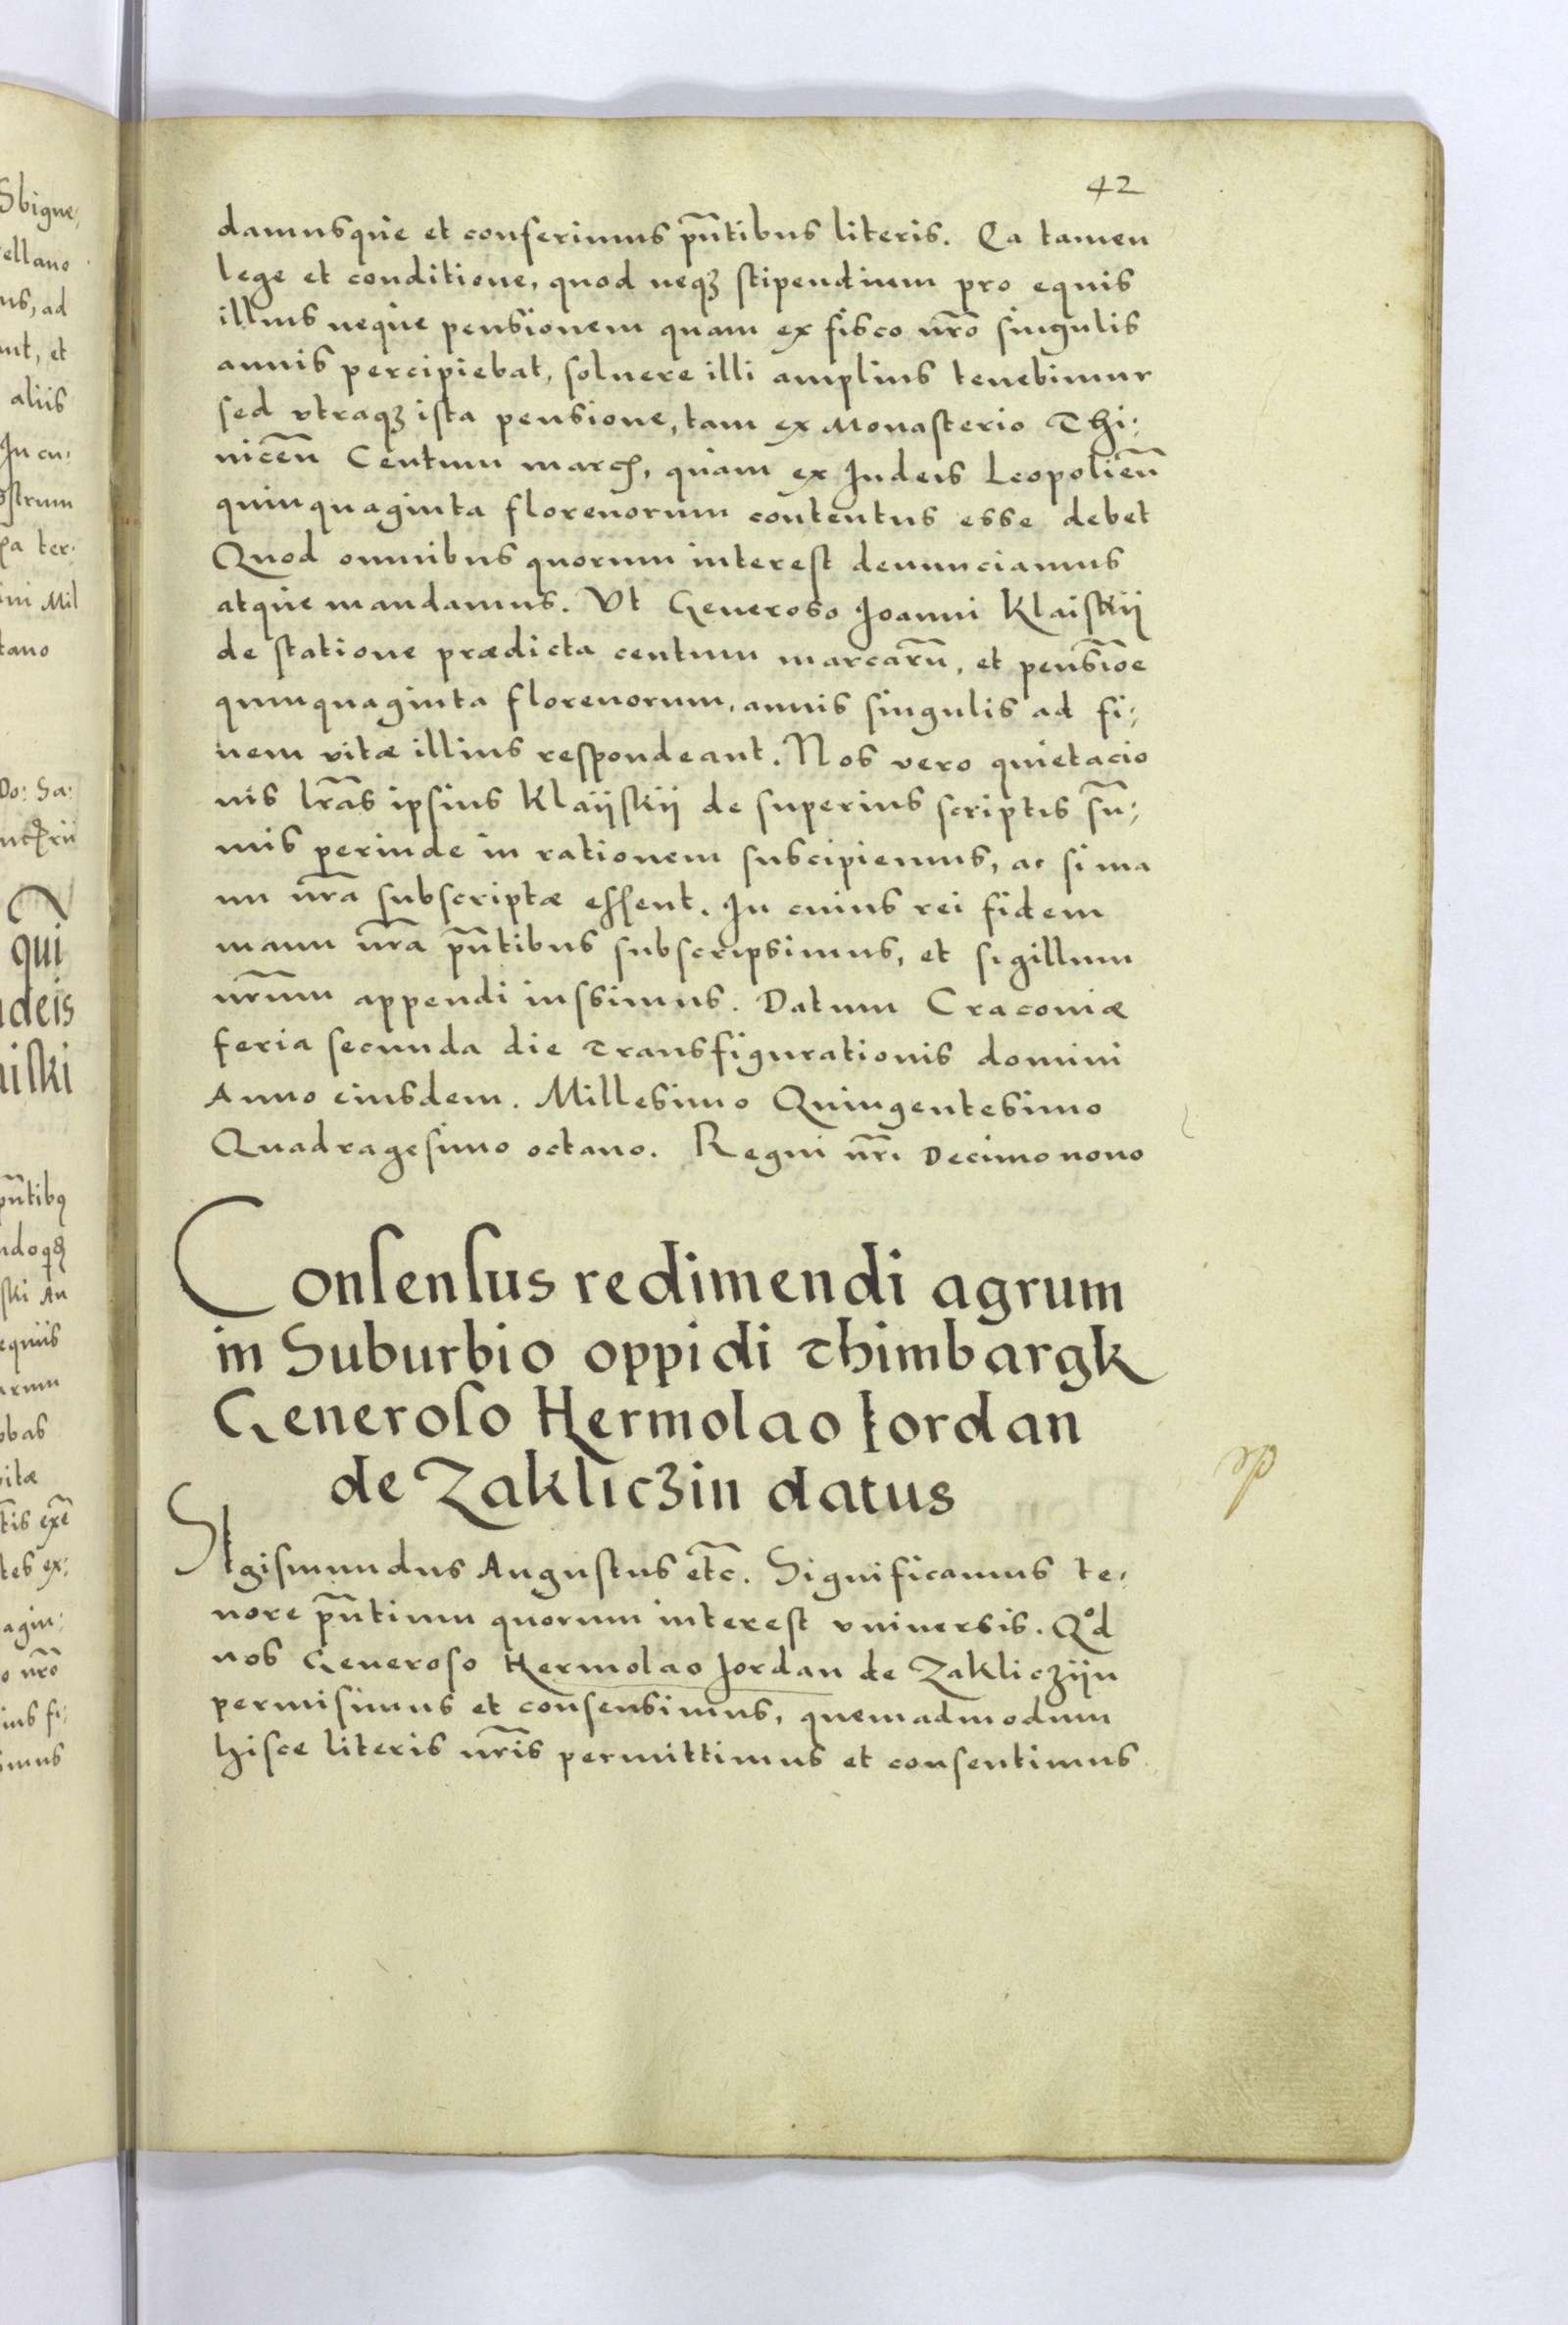 42
damusque et conferimus pn̄tibus literis. Ea tamen
lege et conditione, quod neqꝫ stipendium pro equis
illius neque pensionem quam ex fisco nr̄o singulis
annis percipiebat, soluere illi amplius tenebimur
sed vtraqꝫ ista pensione, tam ex Monasterio Thi;
nicen̄ Centum march, quam ex Iudeis Leopolien̄
quinquaginta florenorum contentus esse debet
Quod omnibus quorum interest denunciamus
atque mandamus. Vt Generoso Ioanni Klaiskij
de statione prædicta centum marcarū, et pensiōe
quinquaginta florenorum, annis singulis ad fi;
nem vitæ illius respondeant. Nos vero quietacio
nis lr̄as ipsius Klaijskij de superius scriptis sū;
mis perinde in rationem suscipiemus, ac si ma
nu nr̄a subscriptæ essent. In cuius rei fidem
manu nr̄a pn̄tibus subscripsimus, et sigillum
nr̄um appendi iussimus. Datum Cracouiæ
feria secunda die Transfigurationis domini
Anno eiusdem. Millesimo Quingentesimo
Quadragesimo octauo. Regni nr̄i Decimo nono
Consensus redimendi agrum
in Suburbio oppidi Thimbargk
Generoso Hermolao Iordan
de Zakliczin datus
SIgismundus Augustus etc̄. Significamus te;
nore pn̄tium quorum interest vniuersis. Qod
nos Generoso Hermolao Iordan de Zakliczijn
permisimus et consensimus, quemadmodum
hisce literis nr̄is permittimus et consentimus